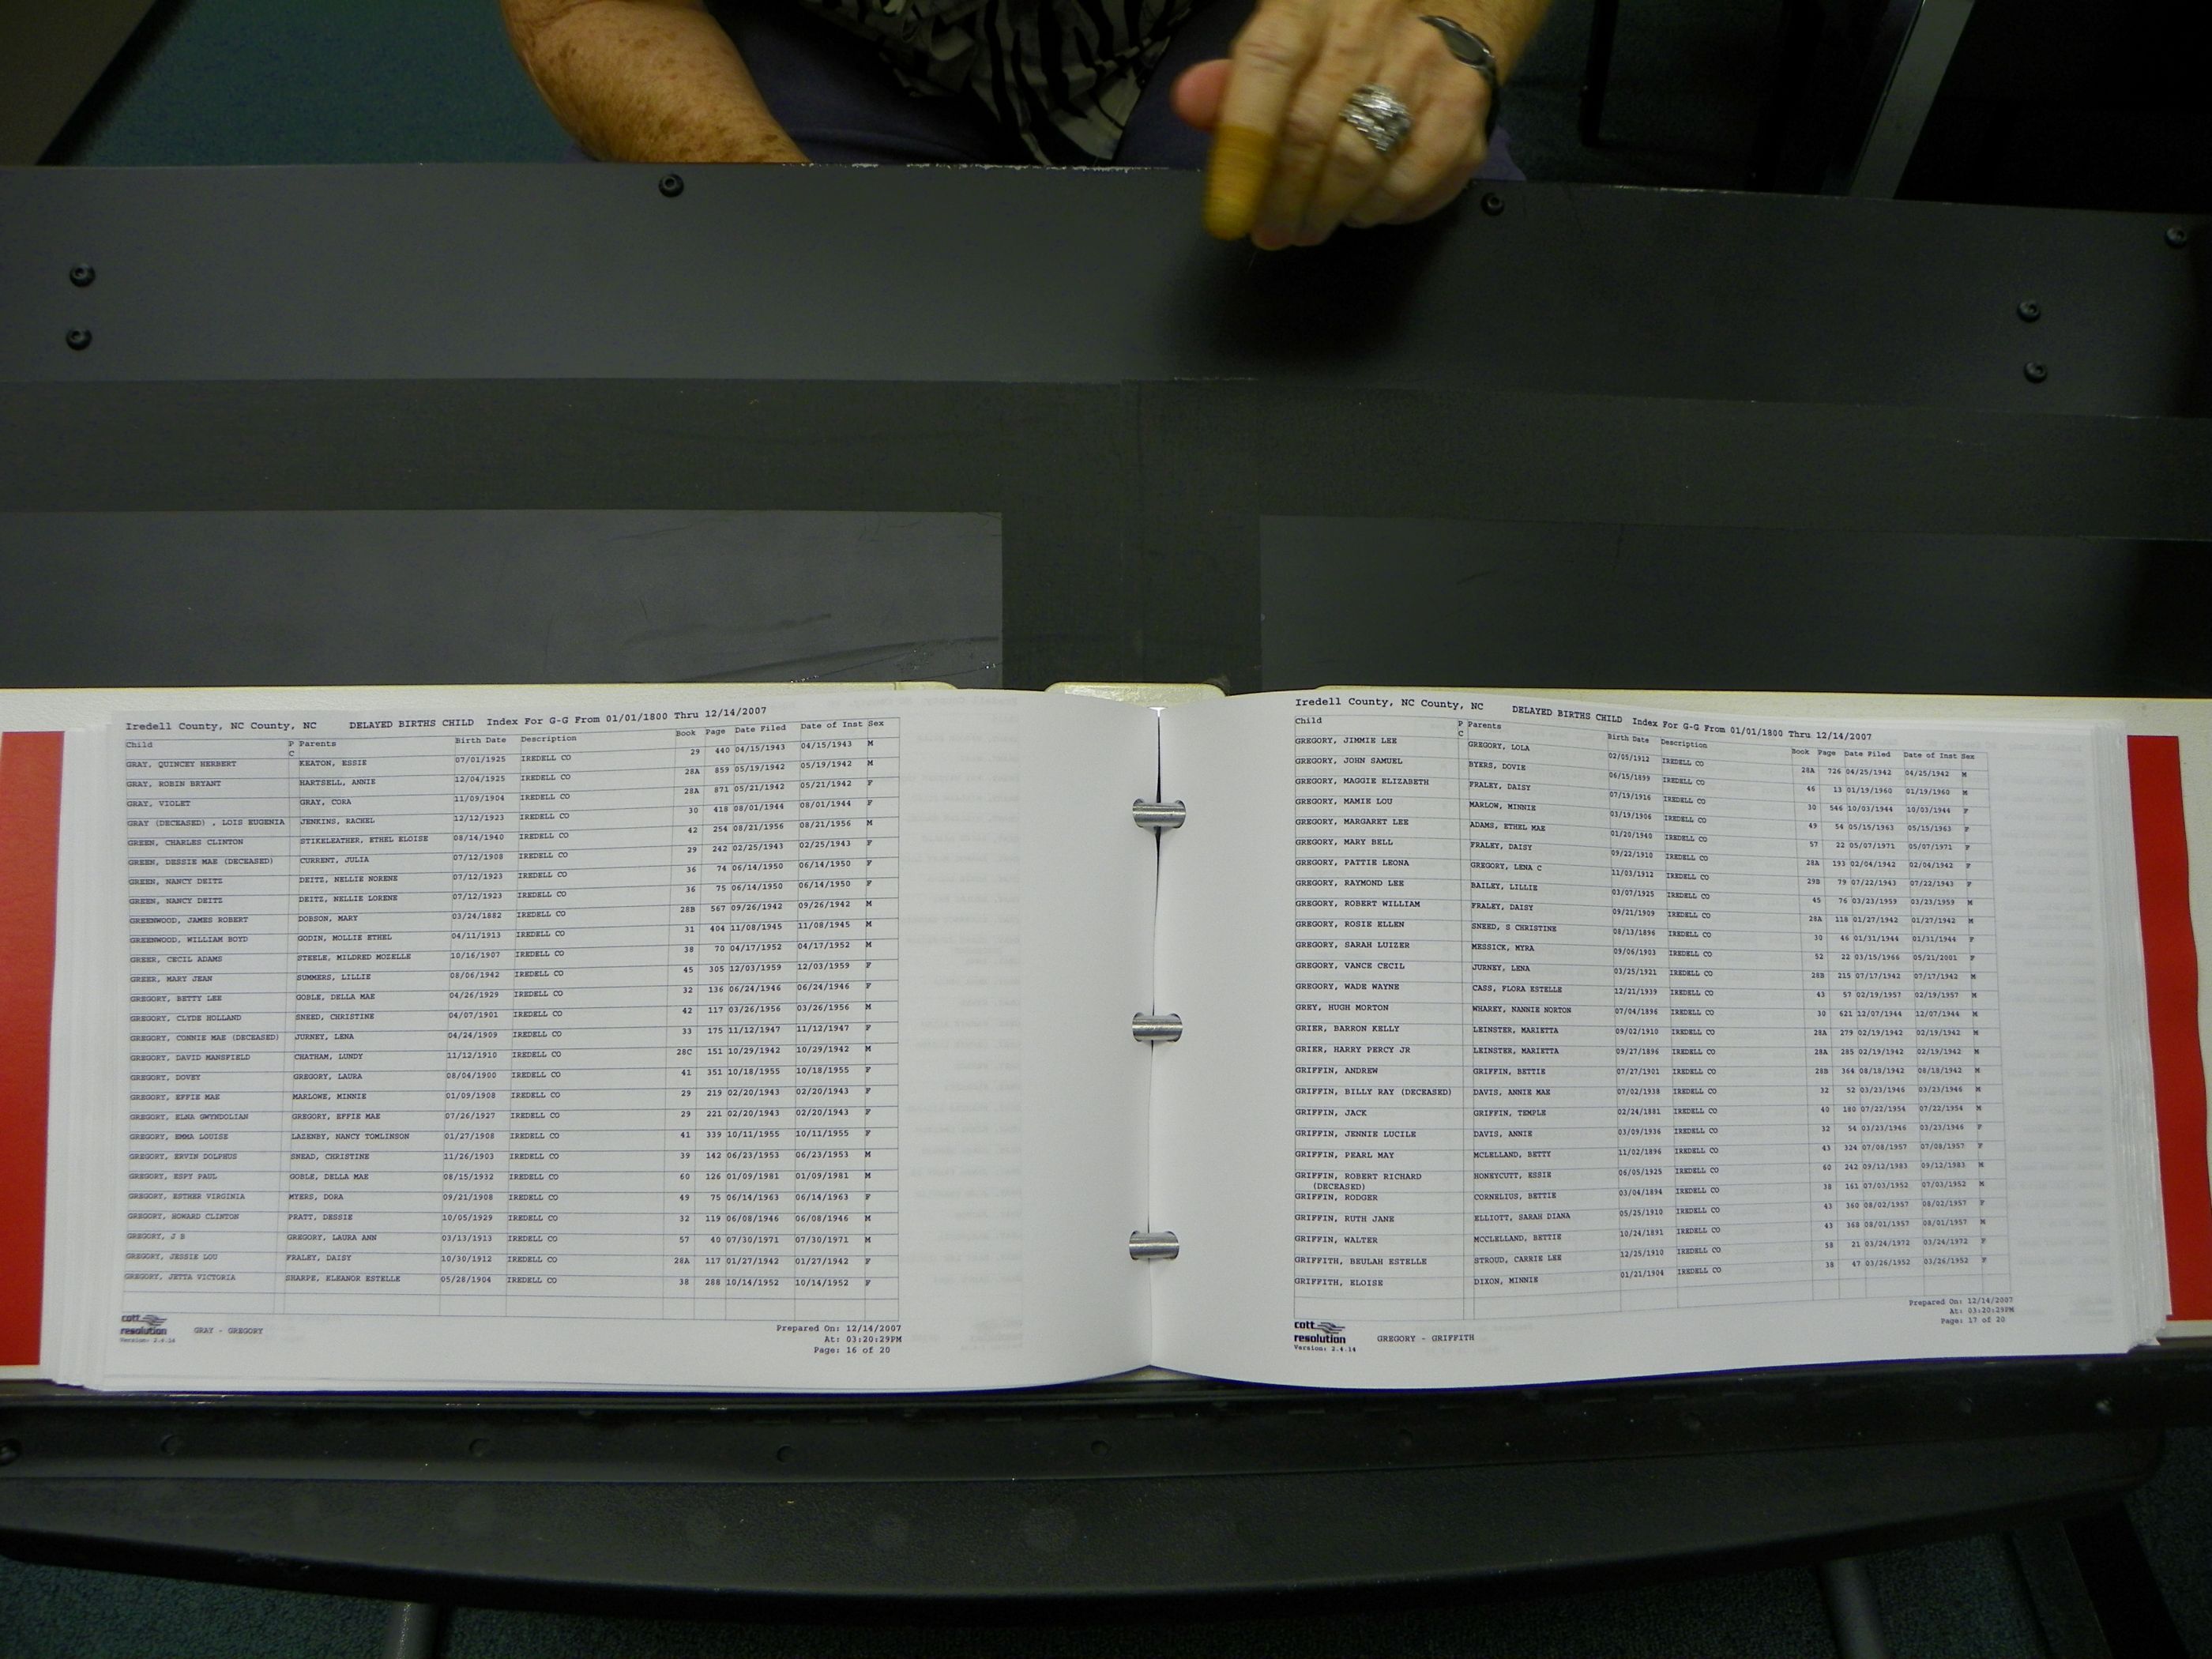 Iredell County, NC County, NC DELAYED BIRTHS CHILD Index For G-G From 01/01/1800 Thru 12/14/2007
Child P C Parents Birth Date Description Book Page Date Filed Date of Inst Sex
GRAY, QUINCEY HERBERT KEATON, ESSIE 07/01/1925 IREDELL CO 29 440 04/15/1943 04/15/1943 M
GRAY, ROBIN BRYANT HARTSELL, ANNIE 12/04/1925 IREDELL CO 28A 859 05/19/1942 05/19/1942 M
GRAY, VIOLET GRAY, CORA 11/09/1904 IREDELL CO 28A 871 05/21/1942 05/21/1942 F
GRAY (DECEASED) , LOIS EUGENIA JENKINS, RACHEL 12/12/1923 IREDELL CO 30 418 08/01/1944 08/01/1944 F
GREEN, CHARLES CLINTON STIKELEATHER, ETHEL ELOISE 08/14/1940 IREDELL CO 42 254 08/21/1956 08/21/1956 M
GREEN, DESSIE MAE (DECEASED) CURRENT, JULIA 07/12/1908 IREDELL CO 29 242 02/25/1943 02/25/1943 F
GREEN, NANCY DEITZ DEITZ, NELLIE NORENE 07/12/1923 IREDELL CO 36 74 06/14/1950 06/14/1950 F
GREEN, NANCY DEITZ DEITZ, NELLIE LORENE 07/12/1923 IREDELL CO 36 75 06/14/1950 06/14/1950 F
GREENWOOD, JAMES ROBERT DOBSON, MARY 03/24/1882 IREDELL CO 28B 567 09/26/1942 09/26/1942 M
GREENWOOD, WILLIAM BOYD GODIN, MOLLIE ETHEL 04/11/1913 IREDELL CO 31 404 11/08/1945 11/08/1945 M
GREER, CECIL ADAMS STEELE, MILDRED MOZELLE 10/16/1907 IREDELL CO 38 70 04/17/1952 04/17/1952 M
GREER, MARY JEAN SUMMERS, LILLIE 08/06/1942 IREDELL CO 45 305 12/03/1959 12/03/1959 F
GREGORY, BETTY LEE GOBLE, DELLA MAE 04/26/1929 IREDELL CO 32 136 06/24/1946 06/24/1946 F
GREGORY, CLYDE HOLLAND SNEED, CHRISTINE 04/07/1901 IREDELL CO 42 117 03/26/1956 03/26/1956 M
GREGORY, CONNIE MAE (DECEASED) JURNEY, LENA 04/24/1909 IREDELL CO 33 175 11/12/1947 11/12/1947 F
GREGORY, DAVID MANSFIELD CHATHAM, LUNDY 11/12/1910 IREDELL CO 28C 151 10/29/1942 10/29/1942 M
GREGORY, DOVEY GREGORY, LAURA 08/04/1900 IREDELL CO 41 351 10/18/1955 10/18/1955 F
GREGORY, EFFIE MAE MARLOWE, MINNIE 01/09/1908 IREDELL CO 29 219 02/20/1943 02/20/1943 F
GREGORY, ELNA GWYNDOLIAN GREGORY, EFFIE MAE 07/26/1927 IREDELL CO 29 221 02/20/1943 02/20/1943 F
GREGORY, EMMA LOUISE LAZENBY, NANCY TOMLINSON 01/27/1908 IREDELL CO 41 339 10/11/1955 10/11/1955 F
GREGORY, ERVIN DOLPHUS SNEAD, CHRISTINE 11/26/1903 IREDELL CO 39 142 06/23/1953 06/23/1953 M
GREGORY, ESPY PAUL GOBLE, DELLA MAE 08/15/1932 IREDELL CO 60 126 01/09/1981 01/09/1981 M
GREGORY, ESTHER VIRGINIA MYERS, DORA 09/21/1908 IREDELL CO 49 75 06/14/1963 06/14/1963 F
GREGORY, HOWARD CLINTON PRATT, DESSIE 10/05/1929 IREDELL CO 32 119 06/08/1946 06/08/1946 M
GREGORY, J B GREGORY, LAURA ANN 03/13/1913 IREDELL CO 57 40 07/30/1971 07/30/1971 M
GREGORY, JESSIE LOU FRALEY, DAISY 10/30/1912 IREDELL CO 28A 117 01/27/1942 01/27/1942 F
GREGORY, JETTA VICTORIA SHARPE, ELEANOR ESTELLE 05/28/1904 IREDELL CO 38 288 10/14/1952 10/14/1952 F
cott
resolution
Version: 2.4.14
GRAY - GREGORY
Prepared On: 12/14/2007
At: 03:20:29PM
Page: 16 of 20
Iredell County, NC County, NC DELAYED BIRTHS CHILD Index For G-G From 01/01/1800 Thru 12/14/2007
Child P C Parents Birth Date Description Book Page Date Filed Date of Inst Sex
GREGORY, JIMMIE LEE GREGORY, LOLA 02/05/1912 IREDELL CO 28A 726 04/25/1942 04/25/1942 M
GREGORY, JOHN SAMUEL BYERS, DOVIE 06/15/1899 IREDELL CO 46 13 01/19/1960 01/19/1960 M
GREGORY, MAGGIE ELIZABETH FRALEY, DAISY 07/19/1916 IREDELL CO 30 546 10/03/1944 10/03/1944 F
GREGORY, MAMIE LOU MARLOW, MINNIE 03/19/1906 IREDELL CO 49 54 05/15/1963 05/15/1963 F
GREGORY, MARGARET LEE ADAMS, ETHEL MAE 01/20/1940 IREDELL CO 57 22 05/07/1971 05/07/1971 F
GREGORY, MARY BELL FRALEY, DAISY 09/22/1910 IREDELL CO 28A 193 02/04/1942 02/04/1942 F
GREGORY, PATTIE LEONA GREGORY, LENA C 11/03/1912 IREDELL CO 29B 79 07/22/1943 07/22/1943 F
GREGORY, RAYMOND LEE BAILEY, LILLIE 03/07/1925 IREDELL CO 45 76 03/23/1959 03/23/1959 M
GREGORY, ROBERT WILLIAM FRALEY, DAISY 09/21/1909 IREDELL CO 28A 118 01/27/1942 01/27/1942 M
GREGORY, ROSIE ELLEN SNEED, S CHRISTINE 08/13/1896 IREDELL CO 30 46 01/31/1944 01/31/1944 F
GREGORY, SARAH LUIZER MESSICK, MYRA 09/06/1903 IREDELL CO 52 22 03/15/1966 05/21/2001 F
GREGORY, VANCE CECIL JURNEY, LENA 03/25/1921 IREDELL CO 28B 215 07/17/1942 07/17/1942 M
GREGORY, WADE WAYNE CASS, FLORA ESTELLE 12/21/1939 IREDELL CO 43 57 02/19/1957 02/19/1957 M
GREY, HUGH MORTON WHAREY, NANNIE NORTON 07/04/1896 IREDELL CO 30 621 12/07/1944 12/07/1944 M
GRIER, BARRON KELLY LEINSTER, MARIETTA 09/02/1910 IREDELL CO 28A 279 02/19/1942 02/19/1942 M
GRIER, HARRY PERCY JR LEINSTER, MARIETTA 09/27/1896 IREDELL CO 28A 285 02/19/1942 02/19/1942 M
GRIFFIN, ANDREW GRIFFIN, BETTIE 07/27/1901 IREDELL CO 28B 364 08/18/1942 08/18/1942 M
GRIFFIN, BILLY RAY (DECEASED) DAVIS, ANNIE MAE 07/02/1938 IREDELL CO 32 52 03/23/1946 03/23/1946 M
GRIFFIN, JACK GRIFFIN, TEMPLE 02/24/1881 IREDELL CO 40 180 07/22/1954 07/22/1954 M
GRIFFIN, JENNIE LUCILE DAVIS, ANNIE 03/09/1936 IREDELL CO 32 54 03/23/1946 03/23/1946 F
GRIFFIN, PEARL MAY MCLELAND, BETTY 11/02/1896 IREDELL CO 43 324 07/08/1957 07/08/1957 F
GRIFFIN, ROBERT RICHARD HONEYCUTT, ESSIE 06/05/1925 IREDELL CO 60 242 09/12/1983 09/12/1983 M
(DECEASED)
GRIFFIN, RODGER CORNELIUS, BETTIE 03/04/1894 IREDELL CO 38 161 07/03/1952 07/03/1952 M
GRIFFIN, RUTH JANE ELLIOTT, SARAH DIANA 05/25/1910 IREDELL CO 43 360 08/02/1957 08/02/1957 F
GRIFFIN, WALTER MCCLELLAND, BETTIE 10/24/1891 IREDELL CO 43 368 08/01/1957 08/01/1957 M
GRIFFITH, BEULAH ESTELLE STROUD, CARRIE LEE 12/25/1910 IREDELL CO 58 21 03/24/1972 03/24/1972 F
GRIFFITH, ELOISE DIXON, MINNIE 01/21/1904 IREDELL CO 38 47 03/26/1952 03/26/1952 F
cott
resolution
Version: 2.4.14
GREGORY - GRIFFITH
Prepared On: 12/14/2007
At: 03:20:29PM
Page: 17 of 20